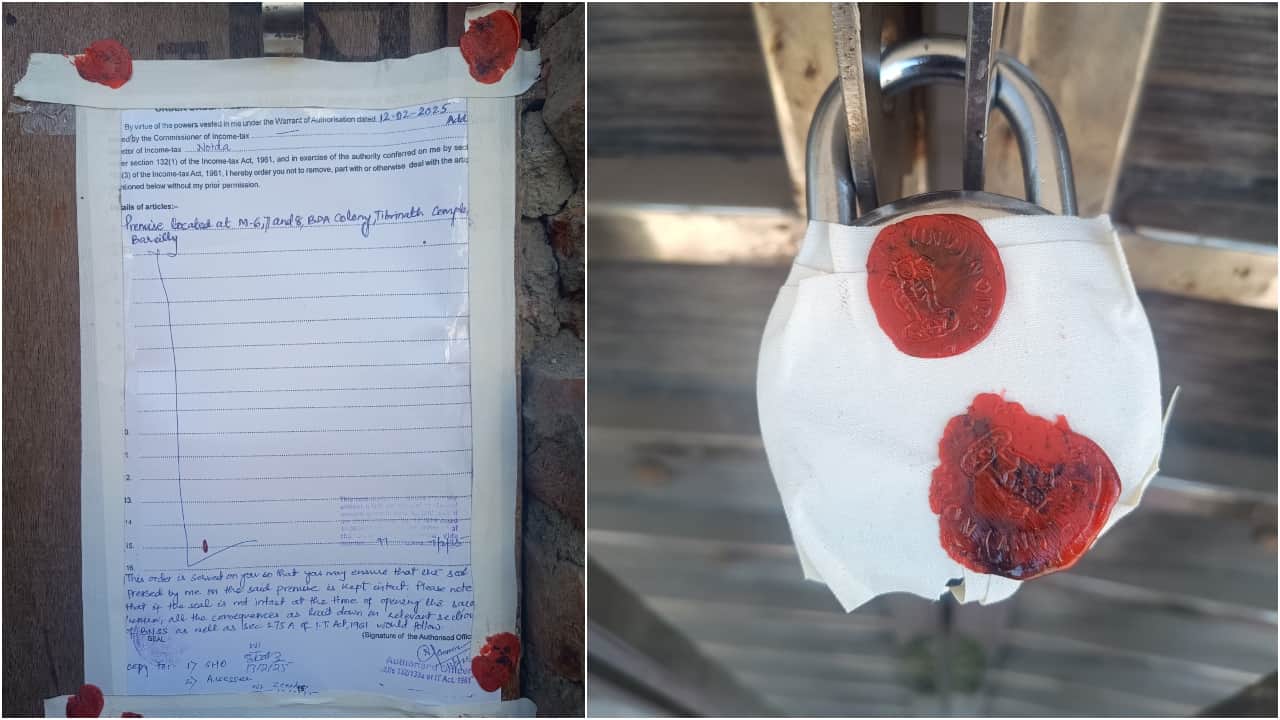 By virtue of the powers vested in me under the Warrant of Authorisation dated. 12-02-2025
ed by the Commissioner of Income-tax Addl
ctor of Income-tax Noida
er section 132(1) of the Income-tax Act, 1961, and in exercise of the authority conferred on me by sec
(3) of the Income-tax Act, 1961, I hereby order you not to remove, part with or otherwise deal with the artic
tioned below without my prior permission.
ails of articles:-
Premise located at M-6, 7 and 8, BDA Colony, Tibrinath Comple,
Bareilly
12.
13.
14.
15.
16.
This order is served on you so that you may ensure that the seal
pressed by me on the said premise is kept intact. Please note
that if the seal is not intact at the time of opening the said
premise, all the consequences as laid down in relevant section
of BNSS as well as sec 275A of I.T. Act, 1961 would follow.
SEAL
(Signature of the Authorised Offic
copy to:- 1) SHO
13/2/25
2) Assessee
Authorised Officer
of IT Act, 1961
NOIDA